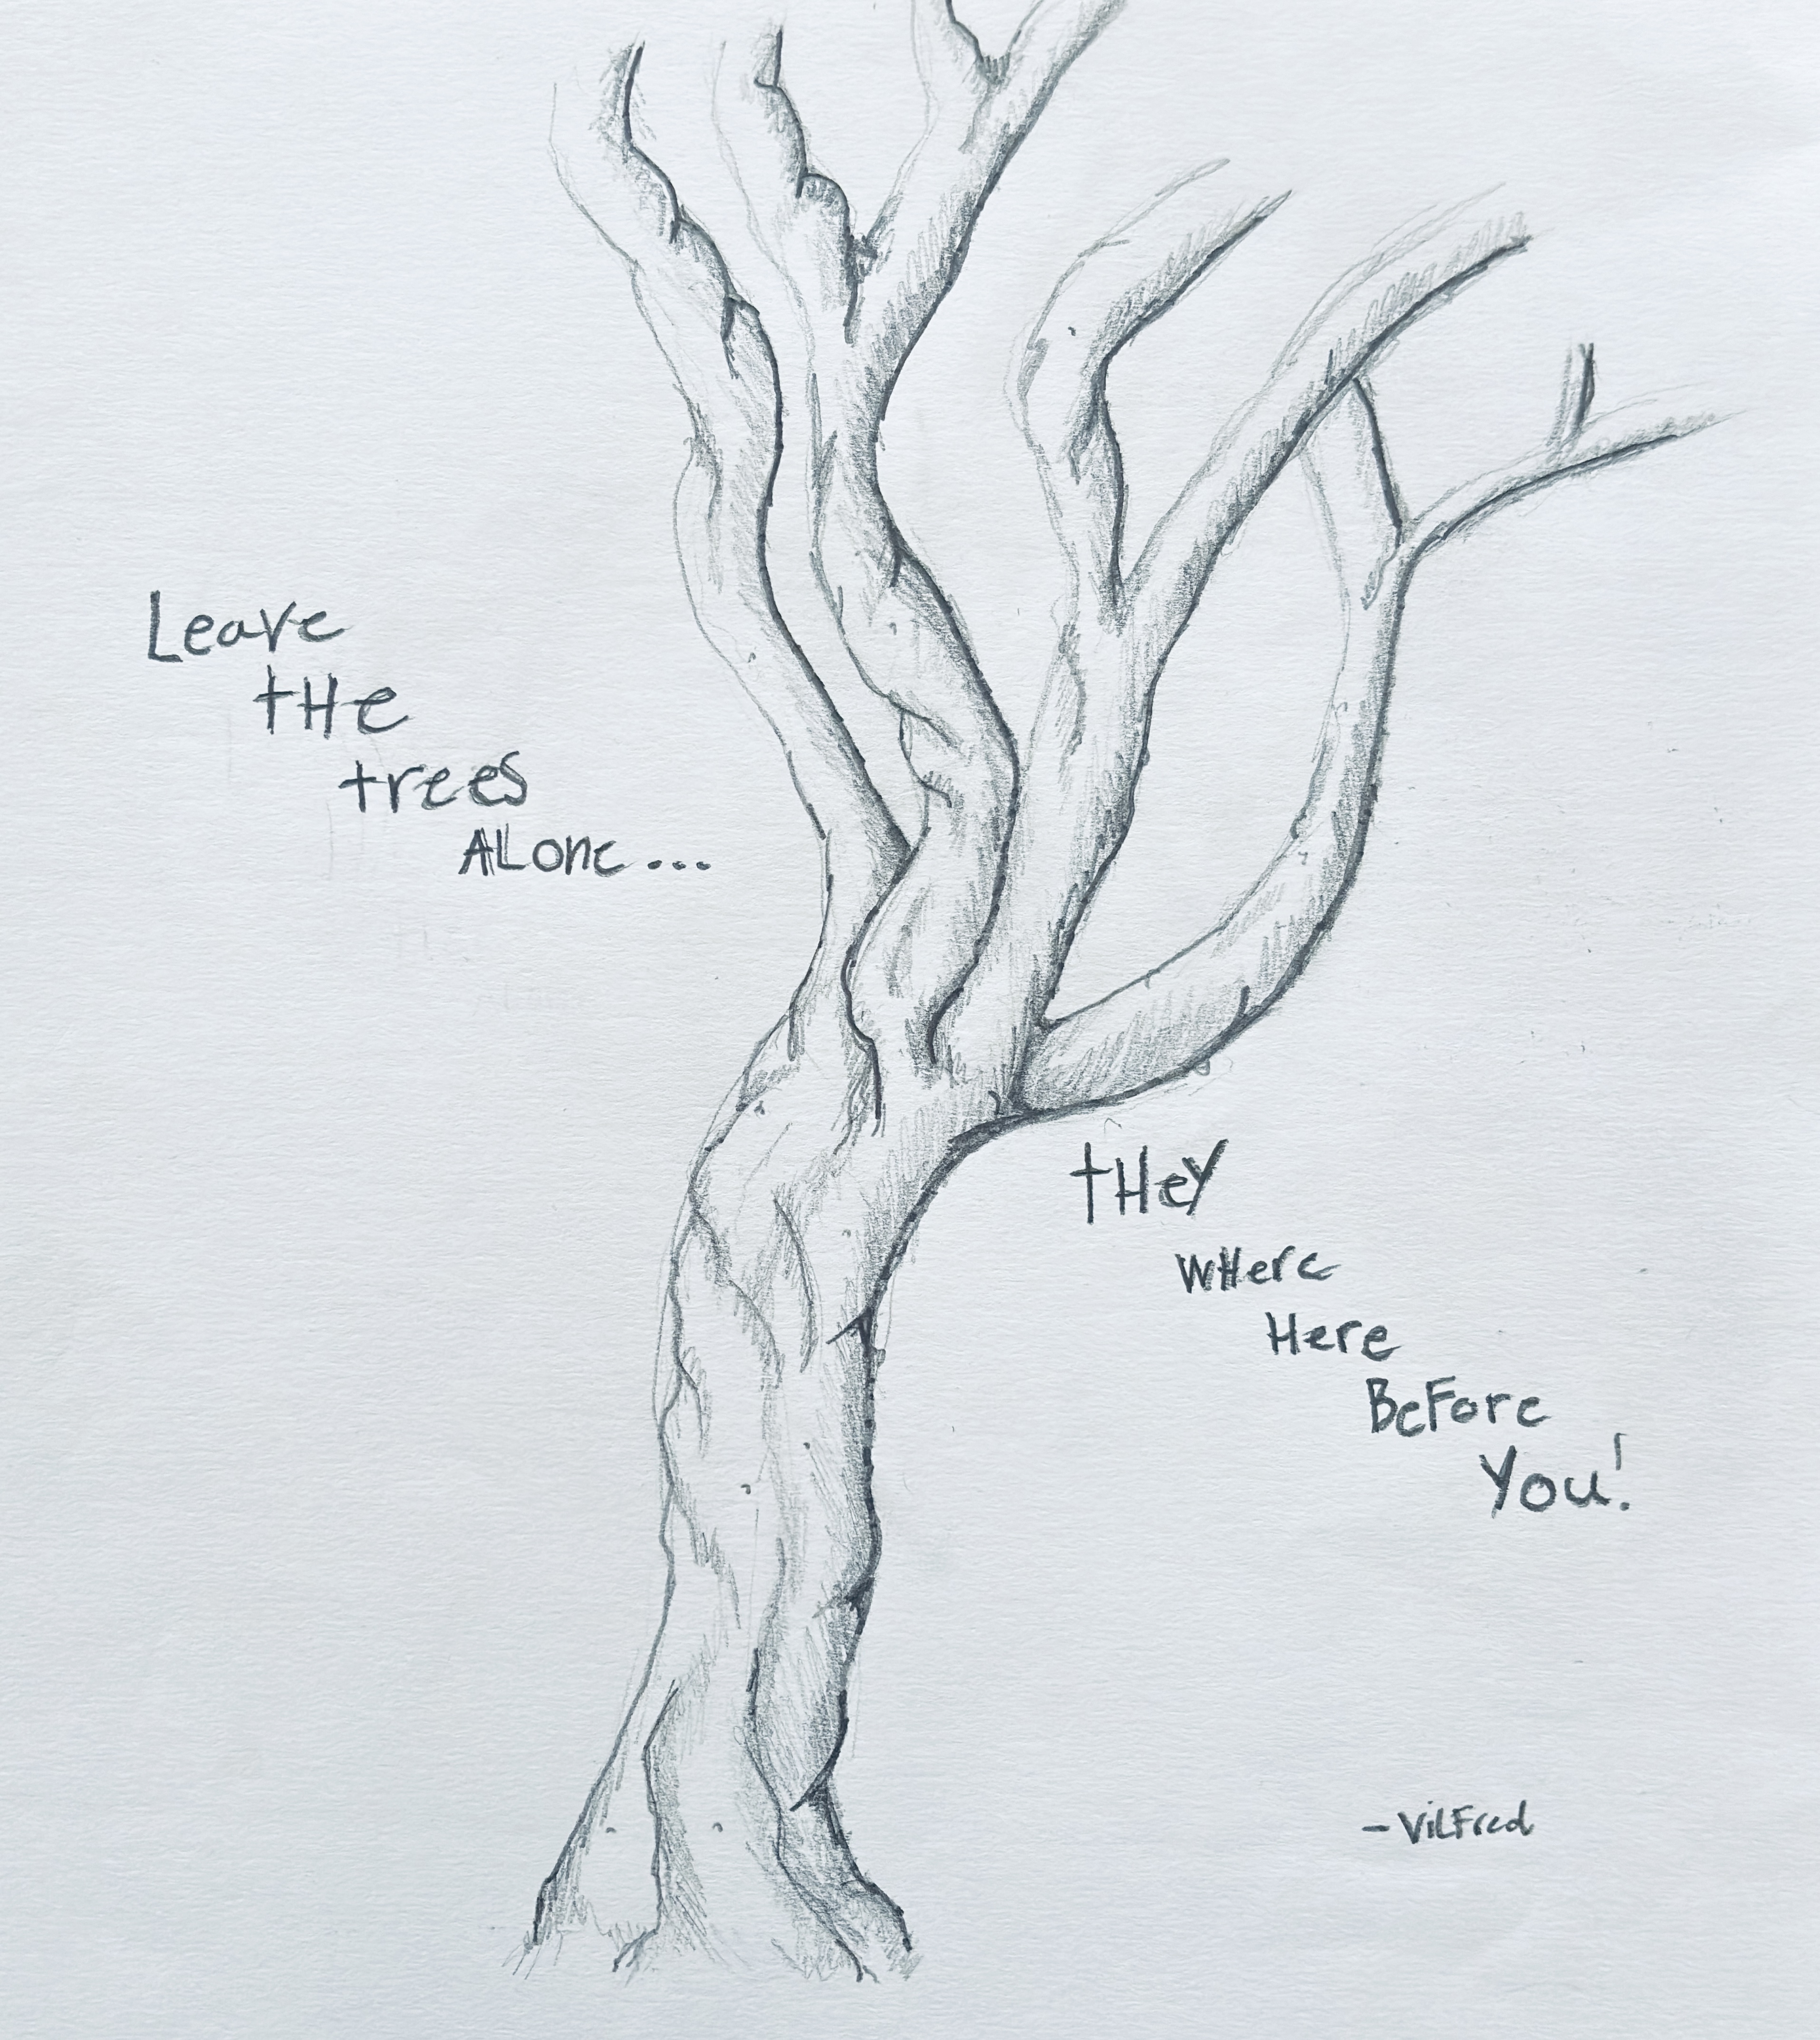 Leave
tHe
trees
ALone...
tHey
wHere
Here
BeFore
You!
- ViLFred